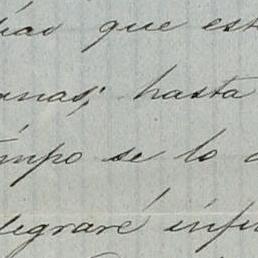 días que est
anas; hasta
empo se lo a
legraré infi